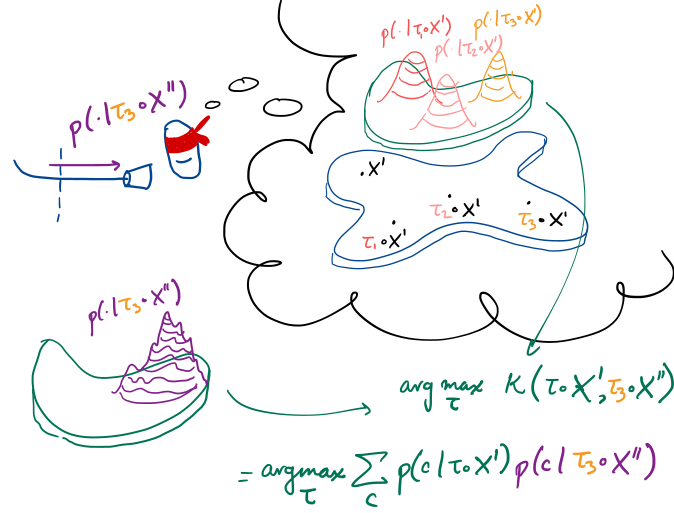 p(·|τ₁∘X')
p(·|τ₂∘X')
p(·|τ₃∘X')
p(·|τ₃∘X'')
·X'
τ₁∘X'
τ₂∘X'
τ₃∘X'
p(·|τ₃∘X'')
arg max_τ K(τ∘X', τ₃∘X'')
= argmax_τ ∑_c p(c|τ∘X') p(c|τ₃∘X'')